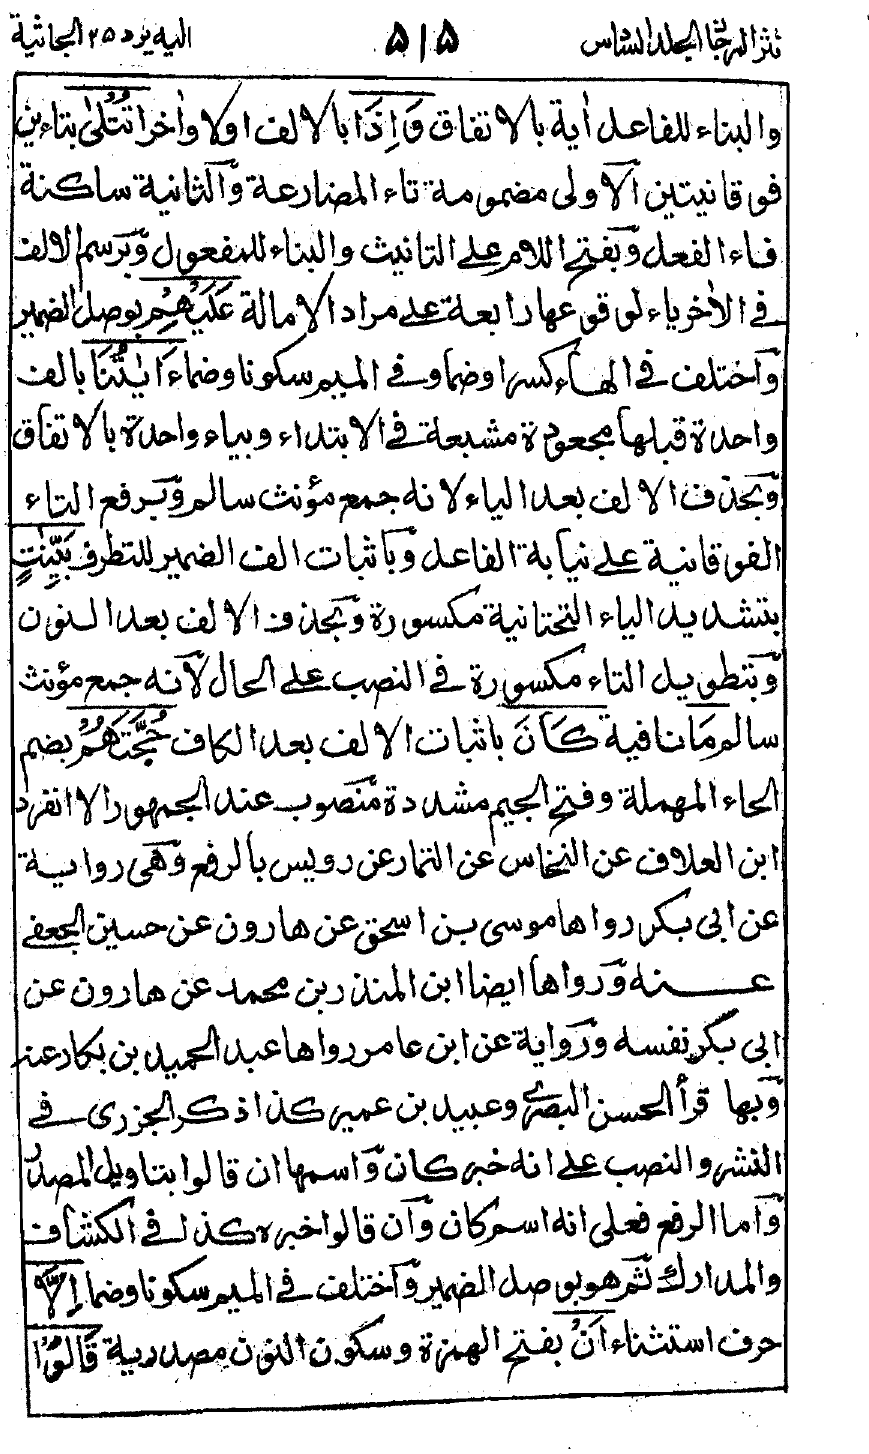 نثر المرجان المجلد السادس ۵۱۵ اليه يرد ۲۵ الجاثية
والبناء للفاعل أية بالاتفاق وَإِذَا بالالف اولا وأخرا تُتْلىٰ بتاءين
فوقانيتين الاولى مضمومة تاء المضارعة والثانية ساكنة
فاء الفعل وبفتح اللام على التانيث والبناء للمفعول وبرسم الالف
في الأخر ياء لوقوعها رابعة على مراد الامالة عَلَيْهِمْ بوصل الضمير
واختلف في الهاء كسرا وضما وفي الميم سكونا وضما ءَايٰتُنَا بالف
واحدة قبلها مجعودة مشبعة في الابتداء وبياء واحدة بالاتفاق
وبحذف الالف بعد الياء لانه جمع مؤنث سالم وبرفع التاء
الفوقانية على نيابة الفاعل وباثبات الف الضمير للتطرف بَيِّنٰتٍ
بتشديد الياء التحتانية مكسورة وبحذف الالف بعد النون
وبتطويل التاء مكسورة في النصب على الحال لانه جمع مؤنث
سالم مَا نافية كَانَ باثبات الالف بعد الكاف حُجَّتَهُمْ بضم
الحاء المهملة وفتح الجيم مشددة منصوب عند الجمهور الا انفرد
ابن العلاف عن النخاس عن التمار عن رويس بالرفع وهى رواية
عن ابى بكر رواها موسى بن اسحق عن هارون عن حسين الجعفى
عنه ورواها ايضا ابن المنذر بن محمد عن هارون عن
ابى بكر نفسه ورواية عن ابن عامر رواها عبد الحميد بن بكار عنه
وبها قرأ الحسن البصرى وعبيد بن عمير كذا ذكر الجزرى فى
النشر والنصب على انه خبر كان واسمها ان قالوا بتاويل المصدر
واما الرفع فعلى انه اسم كان وان قالوا خبره كذا فى الكشاف
والمدارك ثم هو بوصل الضمير واختلف فى الميم سكونا وضما اِلَّا
حرف استثناء اَنْ بفتح الهمزة وسكون النون مصدرية قَالُوْا